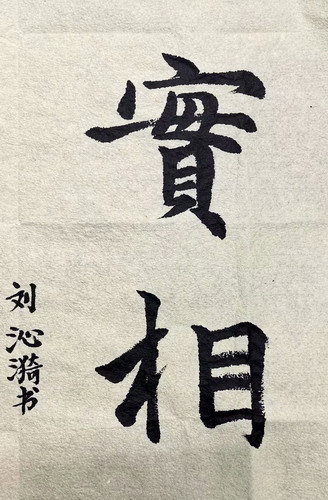 實相
刘沁漪书